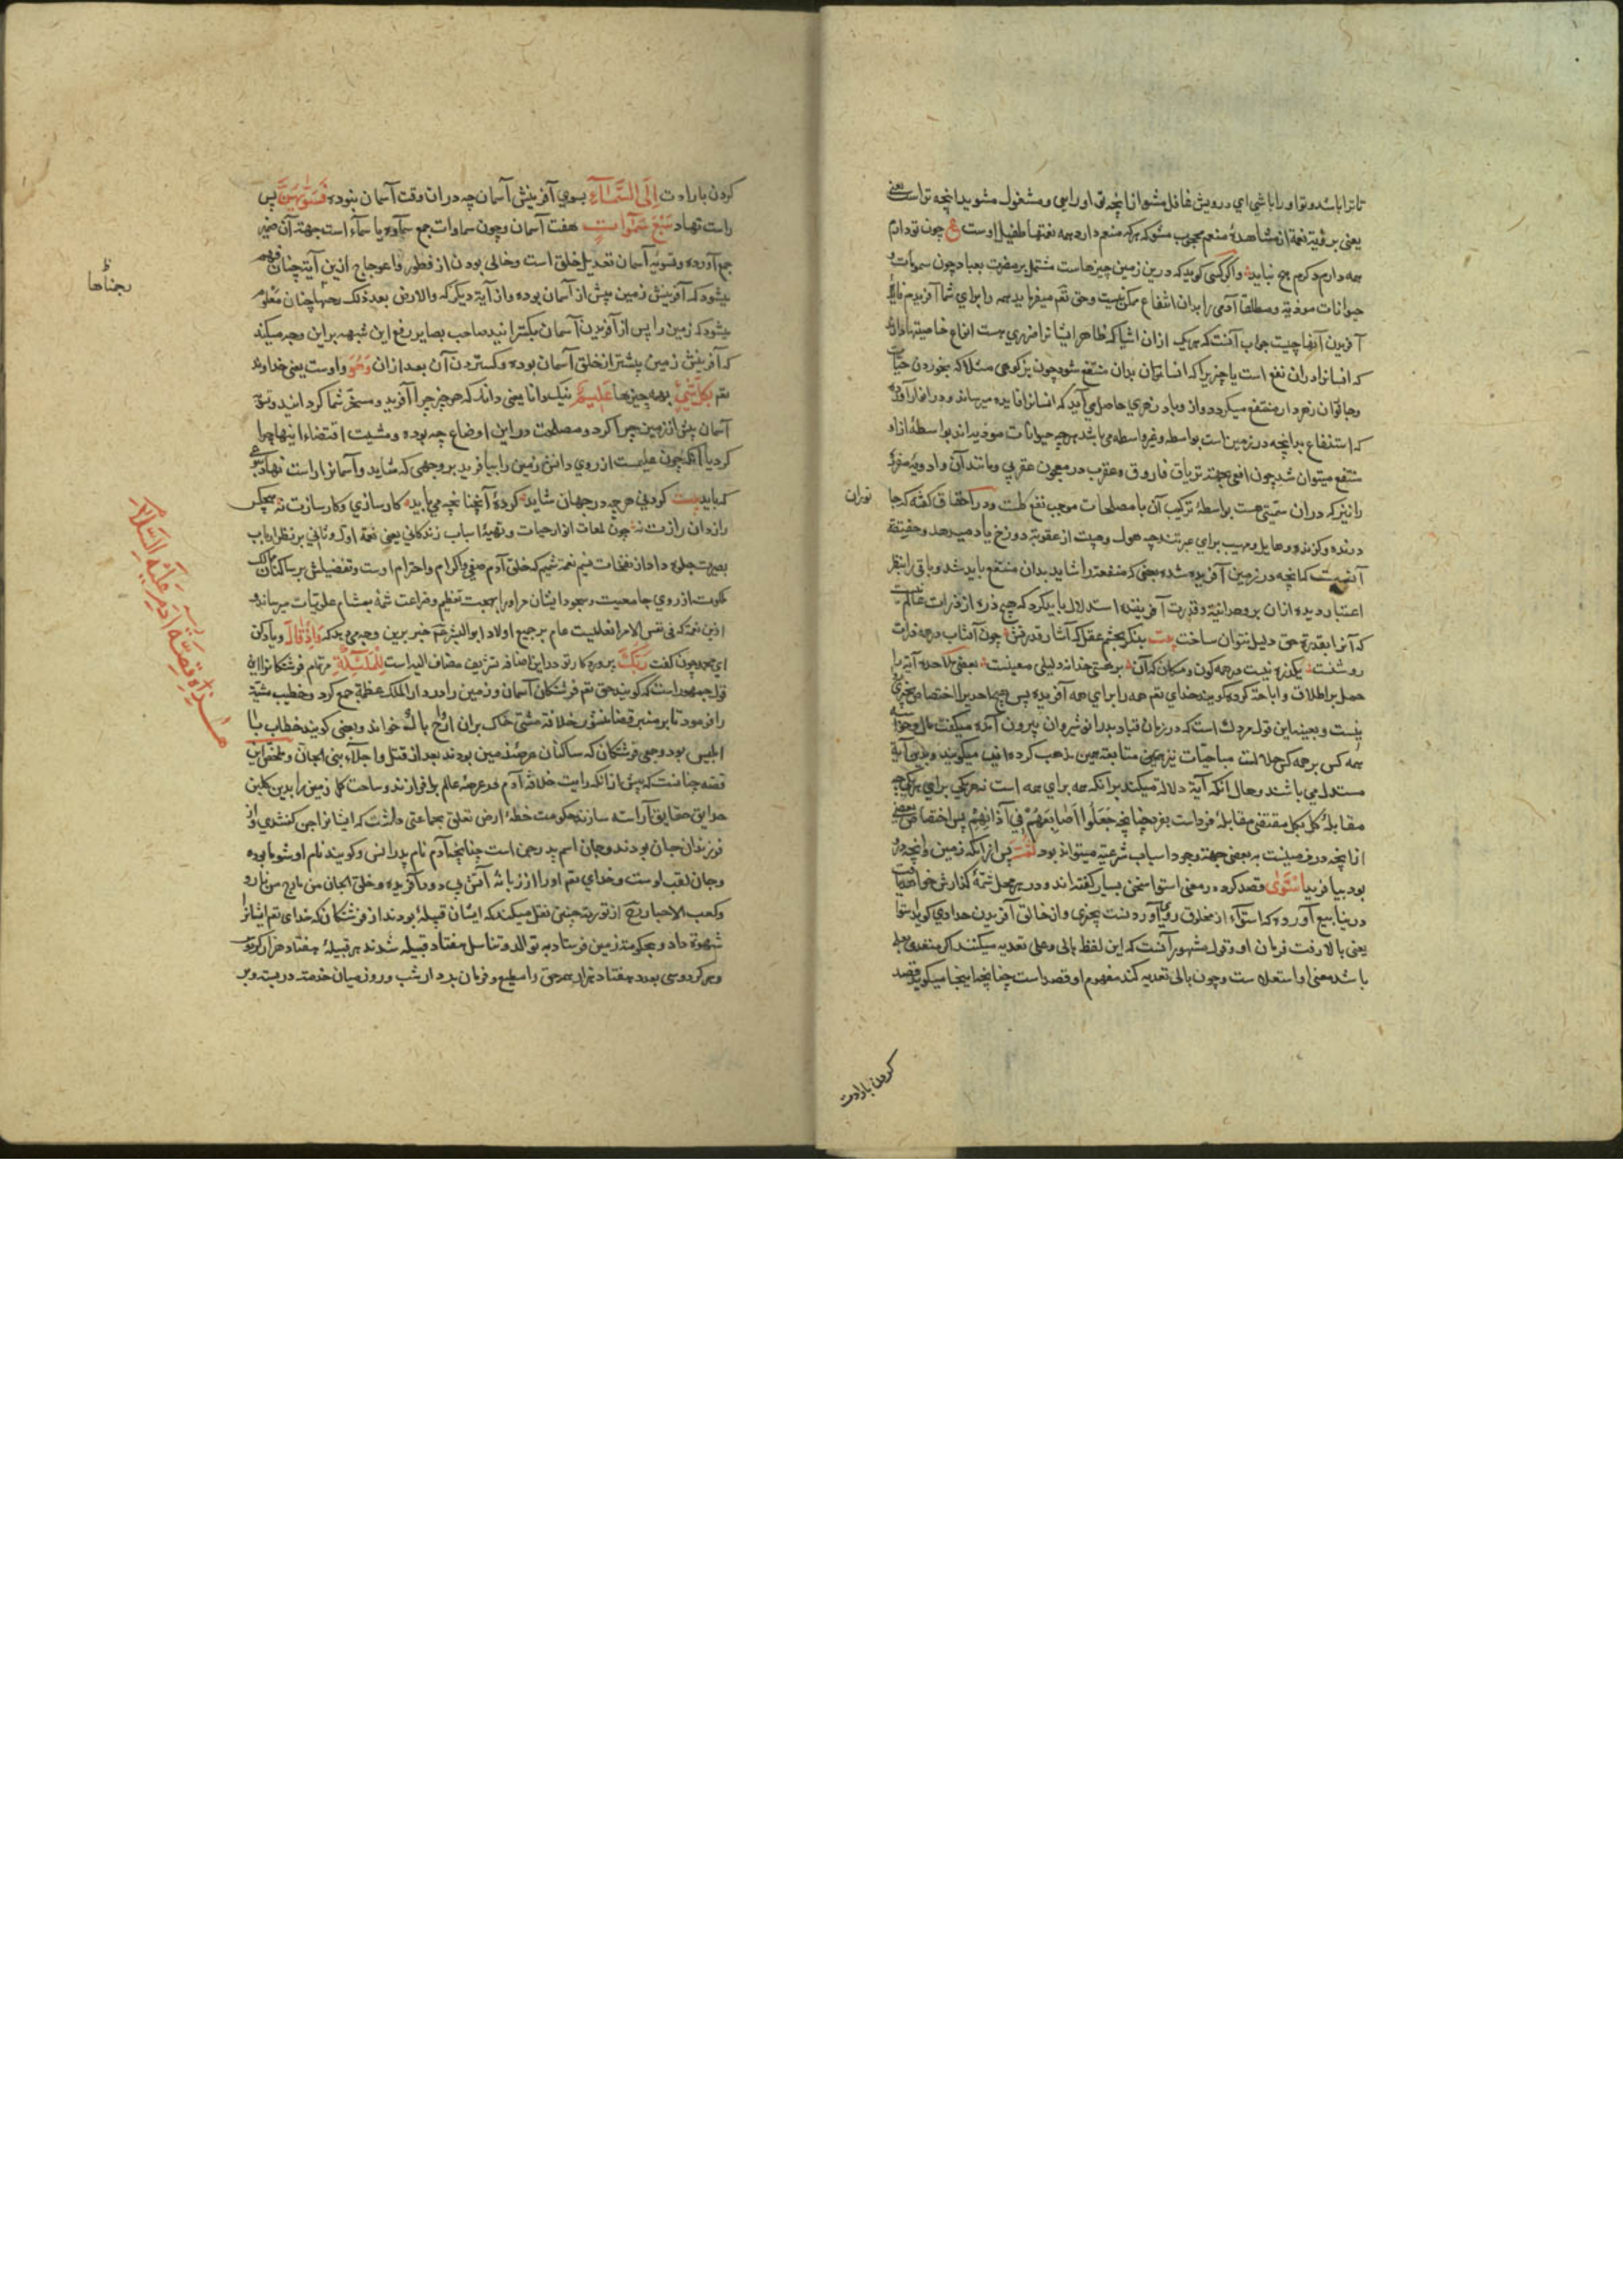 تا ترا باشد و تو او را باشی ای درویش غافل مشو از انچه تو او رایی و مشغول مشو بدانچه تراست یعنی
یعنی برؤیة نعمة از مشاهدهٔ منعم محجوب مشو که هرکه منعم دارد همه نعمتها طفیل اوست ع چون تو دارم
همه دارم دکرم هیچ نباید و اکر کسی کوید که درین زمین چیزهاست مشتمل بر مضرت بعباد چون سمومات و
حیوانات موذیه و مطلقا آدمی را بدان انتفاع ممکن نیست وحق تعم میفرماید همه را برای شما آفریدم فایدهٔ
آفریدن آنها چیست جواب آنست که هر یک ازان اشیا که ظاهر ایشانرا ضرری هست انواع خاصیتها دارند
که انسانرا دران نفع است یا چیزیرا که انسانرا بدان منتفع شود چون بز کوهی مثلا که بخوردن حیات
که استنفاع بدانچه در زمین است بواسطه و غیر واسطه می باشد هرچه حیوانات موذیه اند بواسطهٔ از اد
منتفع میتوان شد چون افعی بجهة تریاق فاروق وعقرب در معجون عقربی و مانند آن وادویهٔ مفردهٔ
را نیز که دران سمّیتی هست بواسطهٔ ترکیب آن با مصلحات موجب نفع کلیست ودر احقاق کفته که جا
نوران
درنده و کزنده و هایل و مهیب برای عبرتند چه هول و هیبت از عقوبة دوزخ یاد میدهد وحقیقة
آنست که انچه در زمین آفریده شده بعضی که منفعة را شاید بدان منتفع باید شد و باقی را بنظر
اعتبار دیده ازان بر وحدانیة و قدرت آفریننده استدلال باید کرد که هیچ ذره از ذرات عالم نیست
که آنرا بقدرة حق دلیل نتوان ساخت بیت بنکر بچشم عقل که آثار قدرتش چون آفتاب در همه ذرات
روشنست یکذره نیست در همه کون و مکان که آن بر هستی خدا نه دلیلی معینست بعضی ملاحده آیة را
حمل بر اطلاق و اباحة کرده کویند خدای تعم همه را برای همه آفریده پس هیچ احدیرا اختصاص بچیزی
نیست و بعینه این قول مزدک است که در زمان قباد پدر انوشیروان بیرون آمد میکفت مال وخواسته
همه کس بر همه کس حلالست مباحیات نیز بهمین متابعة همین مذهب کرده اند میکویند و بدین آیة
مستدل می باشند و حال انکه آیة دلالة میکند برانکه همه برای همه است نه هر یکی برای هر یکی چه
مقابلهٔ کل بکل مقتضی مقابلهٔ فرد است بفرد چنانچه جَعَلُوا أَصَابِعَهُمْ فِي آذَانِهِمْ پس اختصاص بعضی
بود بیافرید اسْتَوٰى قصد کرد و در معنی استوا سخن بسیار کفته اند و در هر محل شمّهٔ کذارش خواهد یافت
یعنی بالا رفت فرمان او وقول مشهور آنست که این لفظ بالی وعلی تعدیه میکنند اکر متعدی بعلی
باشد معنی او استعلاست و چون بالی تعدیه کنند مفهوم او قصد است چنانچه اینجا میکوید قصد
کردن بارادت
کردن بارادت إِلَى السَّمَاءِ بسوی آفرینش آسمان چه دران وقت آسمان نبوده فَسَوّٰىهُنَّ پس
راست نهاد سَبْعَ سَمٰوَاتٍ هفت آسمان وچون سماوات جمع سمآوه یا سمآء است جهة آن ضمیر
جمع آورده و تسویهٔ آسمان تعدیل خلق است وخالی بودن از فطور و اعوجاج ازین آیة چنان فهم
میشود که آفرینش زمین پیش از آسمان بوده و از آیة دیکر که والارض بعد ذلک دحیها چنان معلوم
میشود که زمین را پس از آفریدن آسمان بکسترانید صاحب بصایر رفع این شبهه برین وجه میکند
که آفرینش زمین پیشتر از خلق آسمان بوده و کستردن آن بعد ازان وَهُوَ و اوست یعنی خداوند
تعم بِكُلِّ شَيْءٍ بهمه چیزها عَلِيمٌ نیک دانا یعنی داند که هر چیز چرا آفرید و مسخّر شما کردانید و تسویهٔ
آسمان پیش از زمین چرا کرد و مصلحت درین اوضاع چه بوده و مشیت اقتضاء اینها چرا
کرد یا آنکه چون علیمست از روی دانش زمین را بیافرید بر وجهی که شاید و آسمانرا راست نهاد بنوعی
که باید بیت کردنی هر چه در جهان شاید کردهٔ آنچنانچه می باید کارسازی و کار سازت نه هیچکس
رازدان رازت نه چون لمعات انوار حیات و تهیهٔ اسباب زندکانی یعنی نعمة اول و ثانی بر نظر ارباب
بصیرت جلوه داد از نفحات نسیم نعمة سیم که خلق آدم صفی و اکرام و احترام اوست و تفضیلش بر ساکنان ملک
ملکوت از روی جامعیت و سجود ایشان مر او را بجهت تعظیم و ضراعت شمّهٔ بمشام علویات میرساند و
ازین نعمة که فی نفس الامر انعامیست عام بر جمیع اولاد ابو البشر عم خبر برین وجه می دهد که وَإِذْ قَالَ و یاد کن
ای محمد چون کفت رَبُّكَ پرورد کار تو درین اضافة تشریف مضاف الیه است لِلْمَلٰئِكَةِ مر تمام فرشتکانرا این
قول جمهور است که کویند حق تعم فرشتکان آسمان و زمین را در دار الملک عظمة جمع کرد و خطیب مشیّة
را فرمود تا بر منبر قضا منشور خلافة مشتی خاک بران ارواح پاک خواند و بعضی کویند خطاب با
ابلیس بود و جمعی فرشتکان که ساکنان عرصهٔ زمین بودند بعد از قتل و اجلآء بنی الجانّ و ملخص این
قصه چنانست که پیش ازانکه رایت خلافة آدم در عرصهٔ عالم برافرازند و ساحت کل زمین را بدین کلبن
حدایق حقایق آراسته سازند حکومت خطهٔ ارض تعلق بجماعتی داشت که ایشانرا جن کفتندی و از
فرزندان جان بودند و جان اسم پدر جن است چنانچه آدم نام پدر انس و کویند نام او شوما بوده
و جان لقب اوست و خدای تعم او را از زبانهٔ آتش بی دود آفریده و خلق الجان من مارج من نار و
و کعب الاحبار رح از توریة چنین نقل میکند که ایشان قبیلهٔ بودند از فرشتکان که خدای تعم ایشانرا
شهوة داد و بحکومة زمین فرستاد به توالد و تناسل هفتاد قبیله شدند هر قبیلهٔ هفتاد هزار کردوس
و هر کردوسی بعدد هفتاد هزار همه حق را مطیع و فرمان بردار شب و روز میان خدمة در بسته و بر
هٰذِهِ قِصَّةُ آدَمَ عَلَيْهِ السَّلَامُ